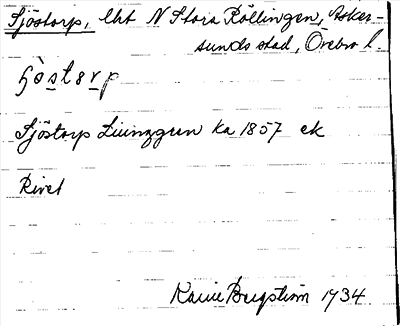 Sjöstorp, lht N Stora Röllingen, Asker-
sunds stad, Örebro l.
Sjöstorp Liunggren ka 1857 ek
Rivet
Karin Bergström 1934